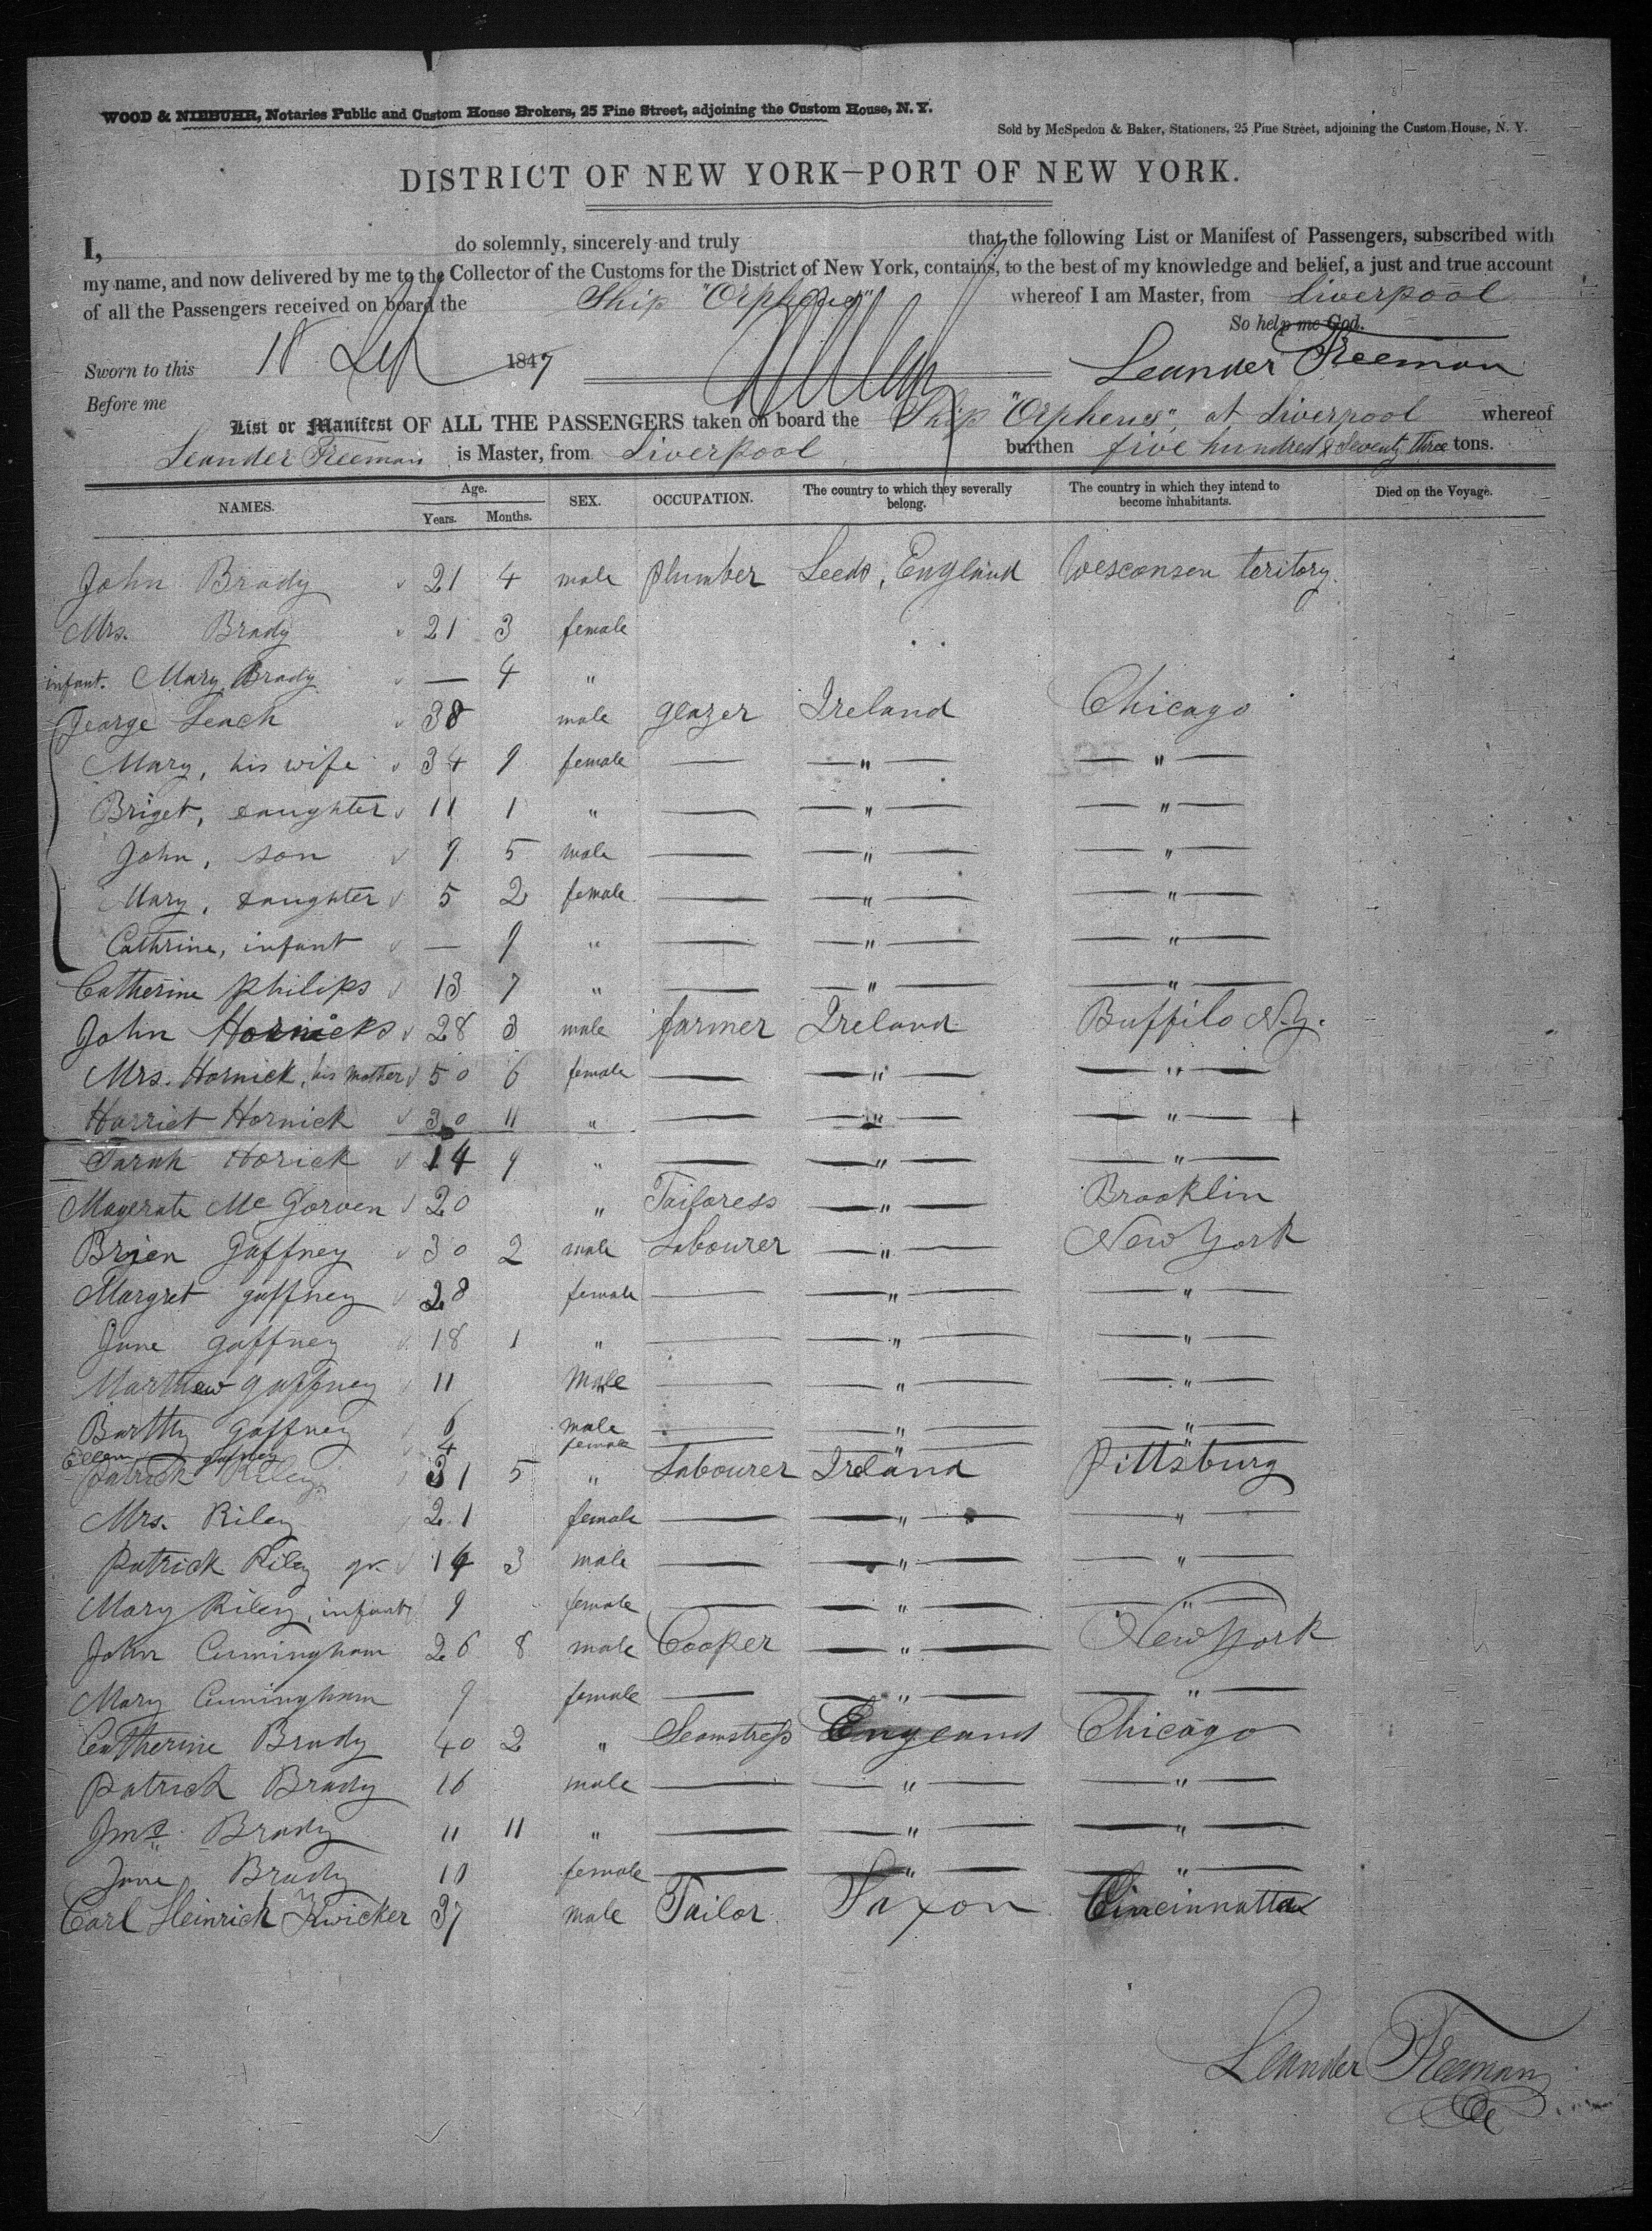 WOOD & NIEBUHR, Notaries Public and Custom House Brokers, 25 Pine Street, adjoining the Custom House, N. Y.
Sold by McSpedon & Baker, Stationers, 25 Pine Street, adjoining the Custom House, N. Y.
DISTRICT OF NEW YORK—PORT OF NEW YORK.
I, do solemnly, sincerely and truly that the following List or Manifest of Passengers, subscribed with
my name, and now delivered by me to the Collector of the Customs for the District of New York, contains, to the best of my knowledge and belief, a just and true account
of all the Passengers received on board the Ship "Orpheus" whereof I am Master, from Liverpool
So help me God.
Sworn to this 18 Sep 1847 Leander Freeman
Before me
List or Manifest OF ALL THE PASSENGERS taken on board the Ship "Orpheus", at Liverpool whereof
Leander Freeman is Master, from Liverpool burthen five hundred & seventy three tons.
NAMES. Age. Years. Months. SEX. OCCUPATION. The country to which they severally belong. The country in which they intend to become inhabitants. Died on the Voyage.
John Brady 21 4 male plumber Leeds, England Wesconsen teritory.
Mrs. Brady 21 3 female
infant. Mary Brady — 4 "
George Leach 38 male glazer Ireland Chicago
Mary, his wife 34 9 female — " — — " —
Briget, daughter 11 1 " — " — — " —
John, son 9 5 male — " — — " —
Mary, daughter 5 2 female — " — — " —
Cathrine, infant — 9 " — " — — " —
Catherine philips 13 7 " — " — — " —
John Hornicks 28 3 male farmer Ireland Buffilo N.Y.
Mrs. Hornick, his mother 50 6 female — " — — " —
Harriet Hornick 30 11 " — " — — " —
Sarah Horick 14 9 " — " — — " —
Magerate Mc Gorven 20 " Tailoress — " — Brooklin
Brien Gaffney 30 2 male Labourer — " — New York
Margret gaffney 28 female — " — — " —
Jane gaffney 18 1 " — " — — " —
Marthew gaffney 11 Male — " — — " —
Bartthy gaffney 6 male — " — — " —
Ellen gafney 4 female — " — — " —
Patrick Riley 31 5 " Labourer Ireland Pittsburg
Mrs. Riley 21 female — " — — " —
Patrick Riley gr. 14 3 male — " — — " —
Mary Riley, infant 9 female — " — — " —
John Cuningham 26 8 male Cooper — " — New York
Mary Cuningham 9 female — " — — " —
Catherine Brady 40 2 " Seamstress England Chicago
Patrick Brady 16 male — " — — " —
Jms. Brady 11 11 " — " — — " —
Jane Brady 10 female — " — — " —
Carl Heinrich Kwicker 37 male Tailor Saxon Cincinnatta
Leander Freeman